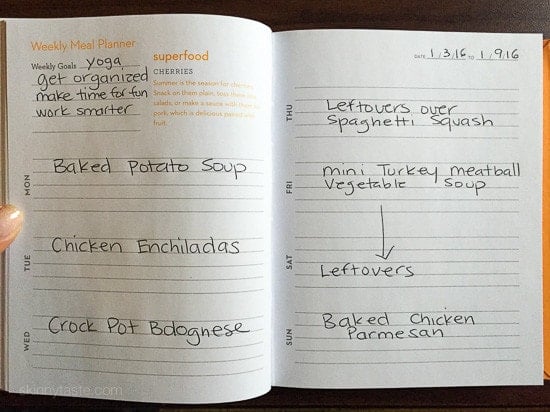 Weekly Meal Planner
Weekly Goals yoga,
get organized
make time for fun
work smarter
superfood
CHERRIES
Summer is the season for cherries.
Snack on them plain, toss them in
salads, or make a sauce with them
pork, which is delicious paired with
fruit.
MON
Baked Potato Soup
TUE
Chicken Enchiladas
WED
Crock Pot Bolognese
skinnytaste.com
DATE 1/3/16 TO 1/9/16
THU
Leftovers over
Spaghetti Squash
FRI
mini Turkey meatball
Vegetable Soup
SAT
Leftovers
SUN
Baked Chicken
Parmesan